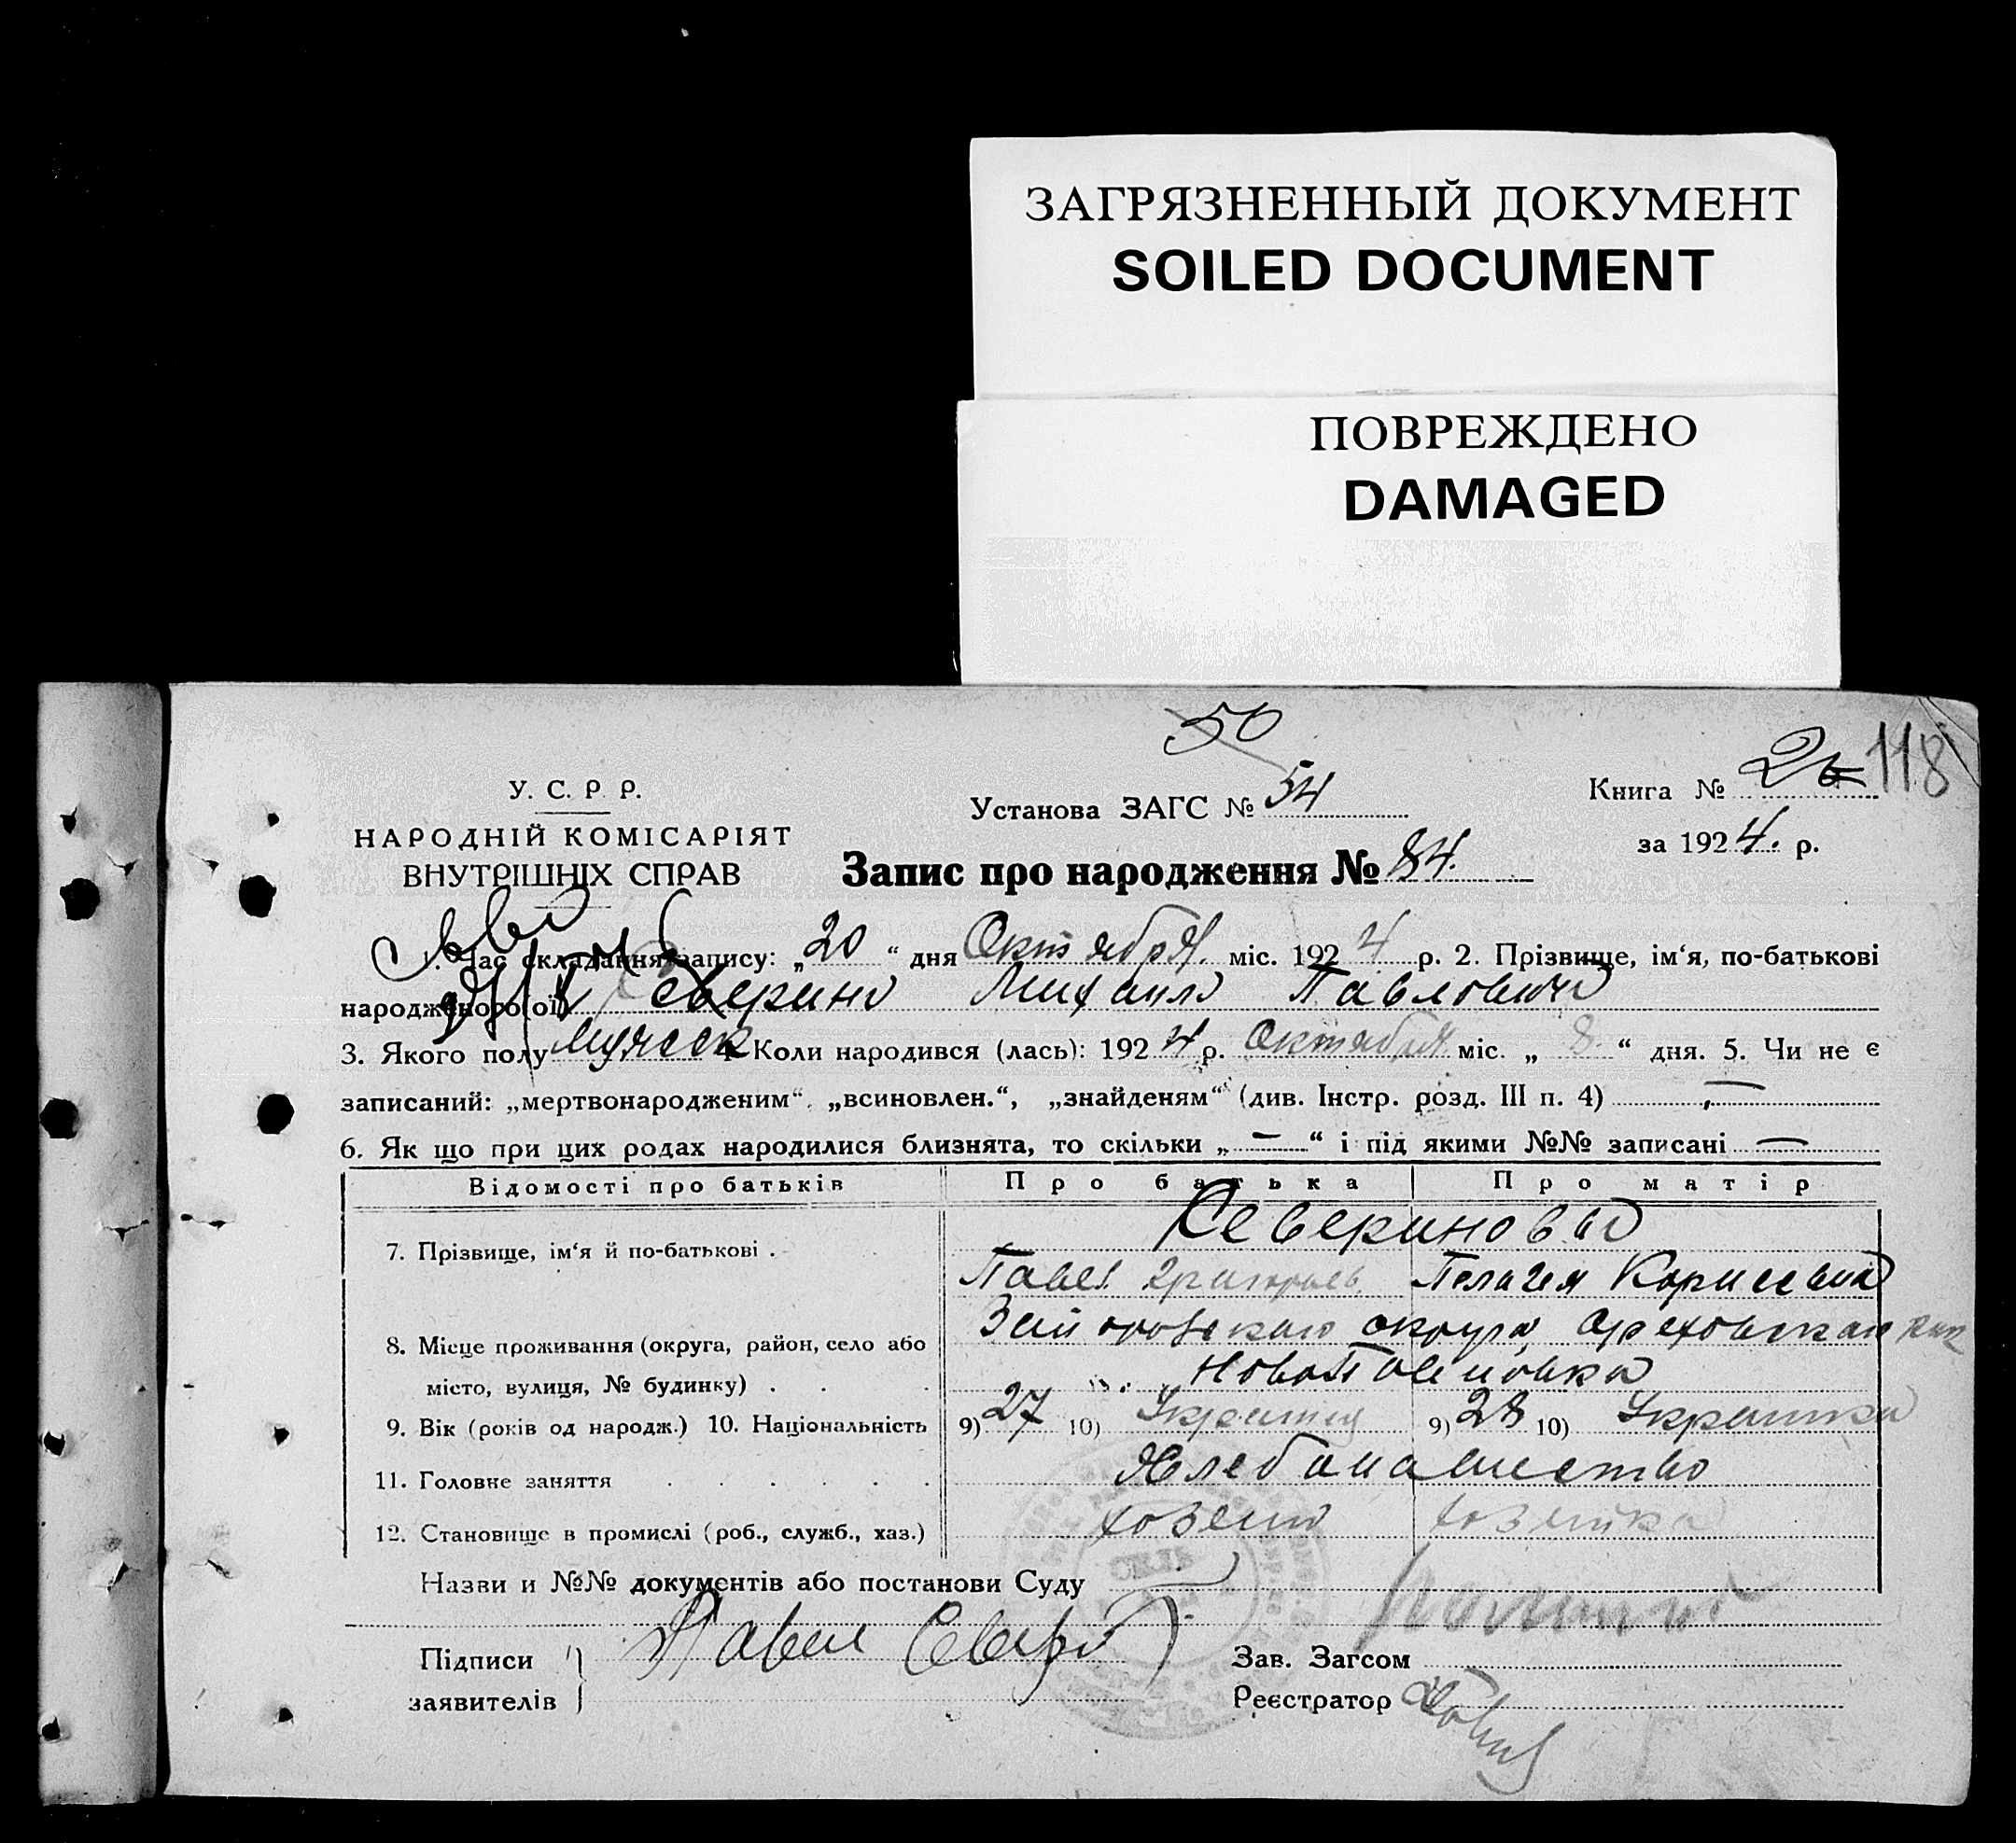 ЗАГРЯЗНЕННЫЙ ДОКУМЕНТ
SOILED DOCUMENT
ПОВРЕЖДЕНО
DAMAGED
50
118
У. С. Р. Р.
НАРОДНІЙ КОМІСАРІЯТ
ВНУТРІШНІХ СПРАВ
Установа ЗАГС № 54
Книга № 2
за 1924. р.
Запис про народження № 84.
1. Час складання запису: „20“ дня Октября. міс. 1924 р. 2. Прізвище, ім‘я, по-батькові
народженого(ої) Северин Михаил Павлович
3. Якого полу мужеск 4. Коли народився (лась): 1924 р. Октября міс. „8“ дня. 5. Чи не є
записаний: „мертвонародженим“, „всиновлен.“, „знайденям“ (див. Інстр. розд. III п. 4) —
6. Як що при цих родах народилися близнята, то скільки „—“ і під якими №№ записані —
Відомості про батьків Про батька Про матір
Севериновы
7. Прізвище, ім‘я й по-батькові .
Павел Григорьев. Пелагея
8. Місце проживання (округа, район, село або округа Ореховскаго
місто, вулиця, № будинку) . . .
9. Вік (років од народж.) 10. Національність 9) 27 10) Украинец 9) 28 10) Украинка
11. Головне заняття . . . . . . Хлебопашество
12. Становище в промислі (роб., служб., хаз.) хозяин хозяйка
Назви и №№ документів або постанови Суду
Підписи Павел
заявителів
Зав. Загсом
Реєстратор